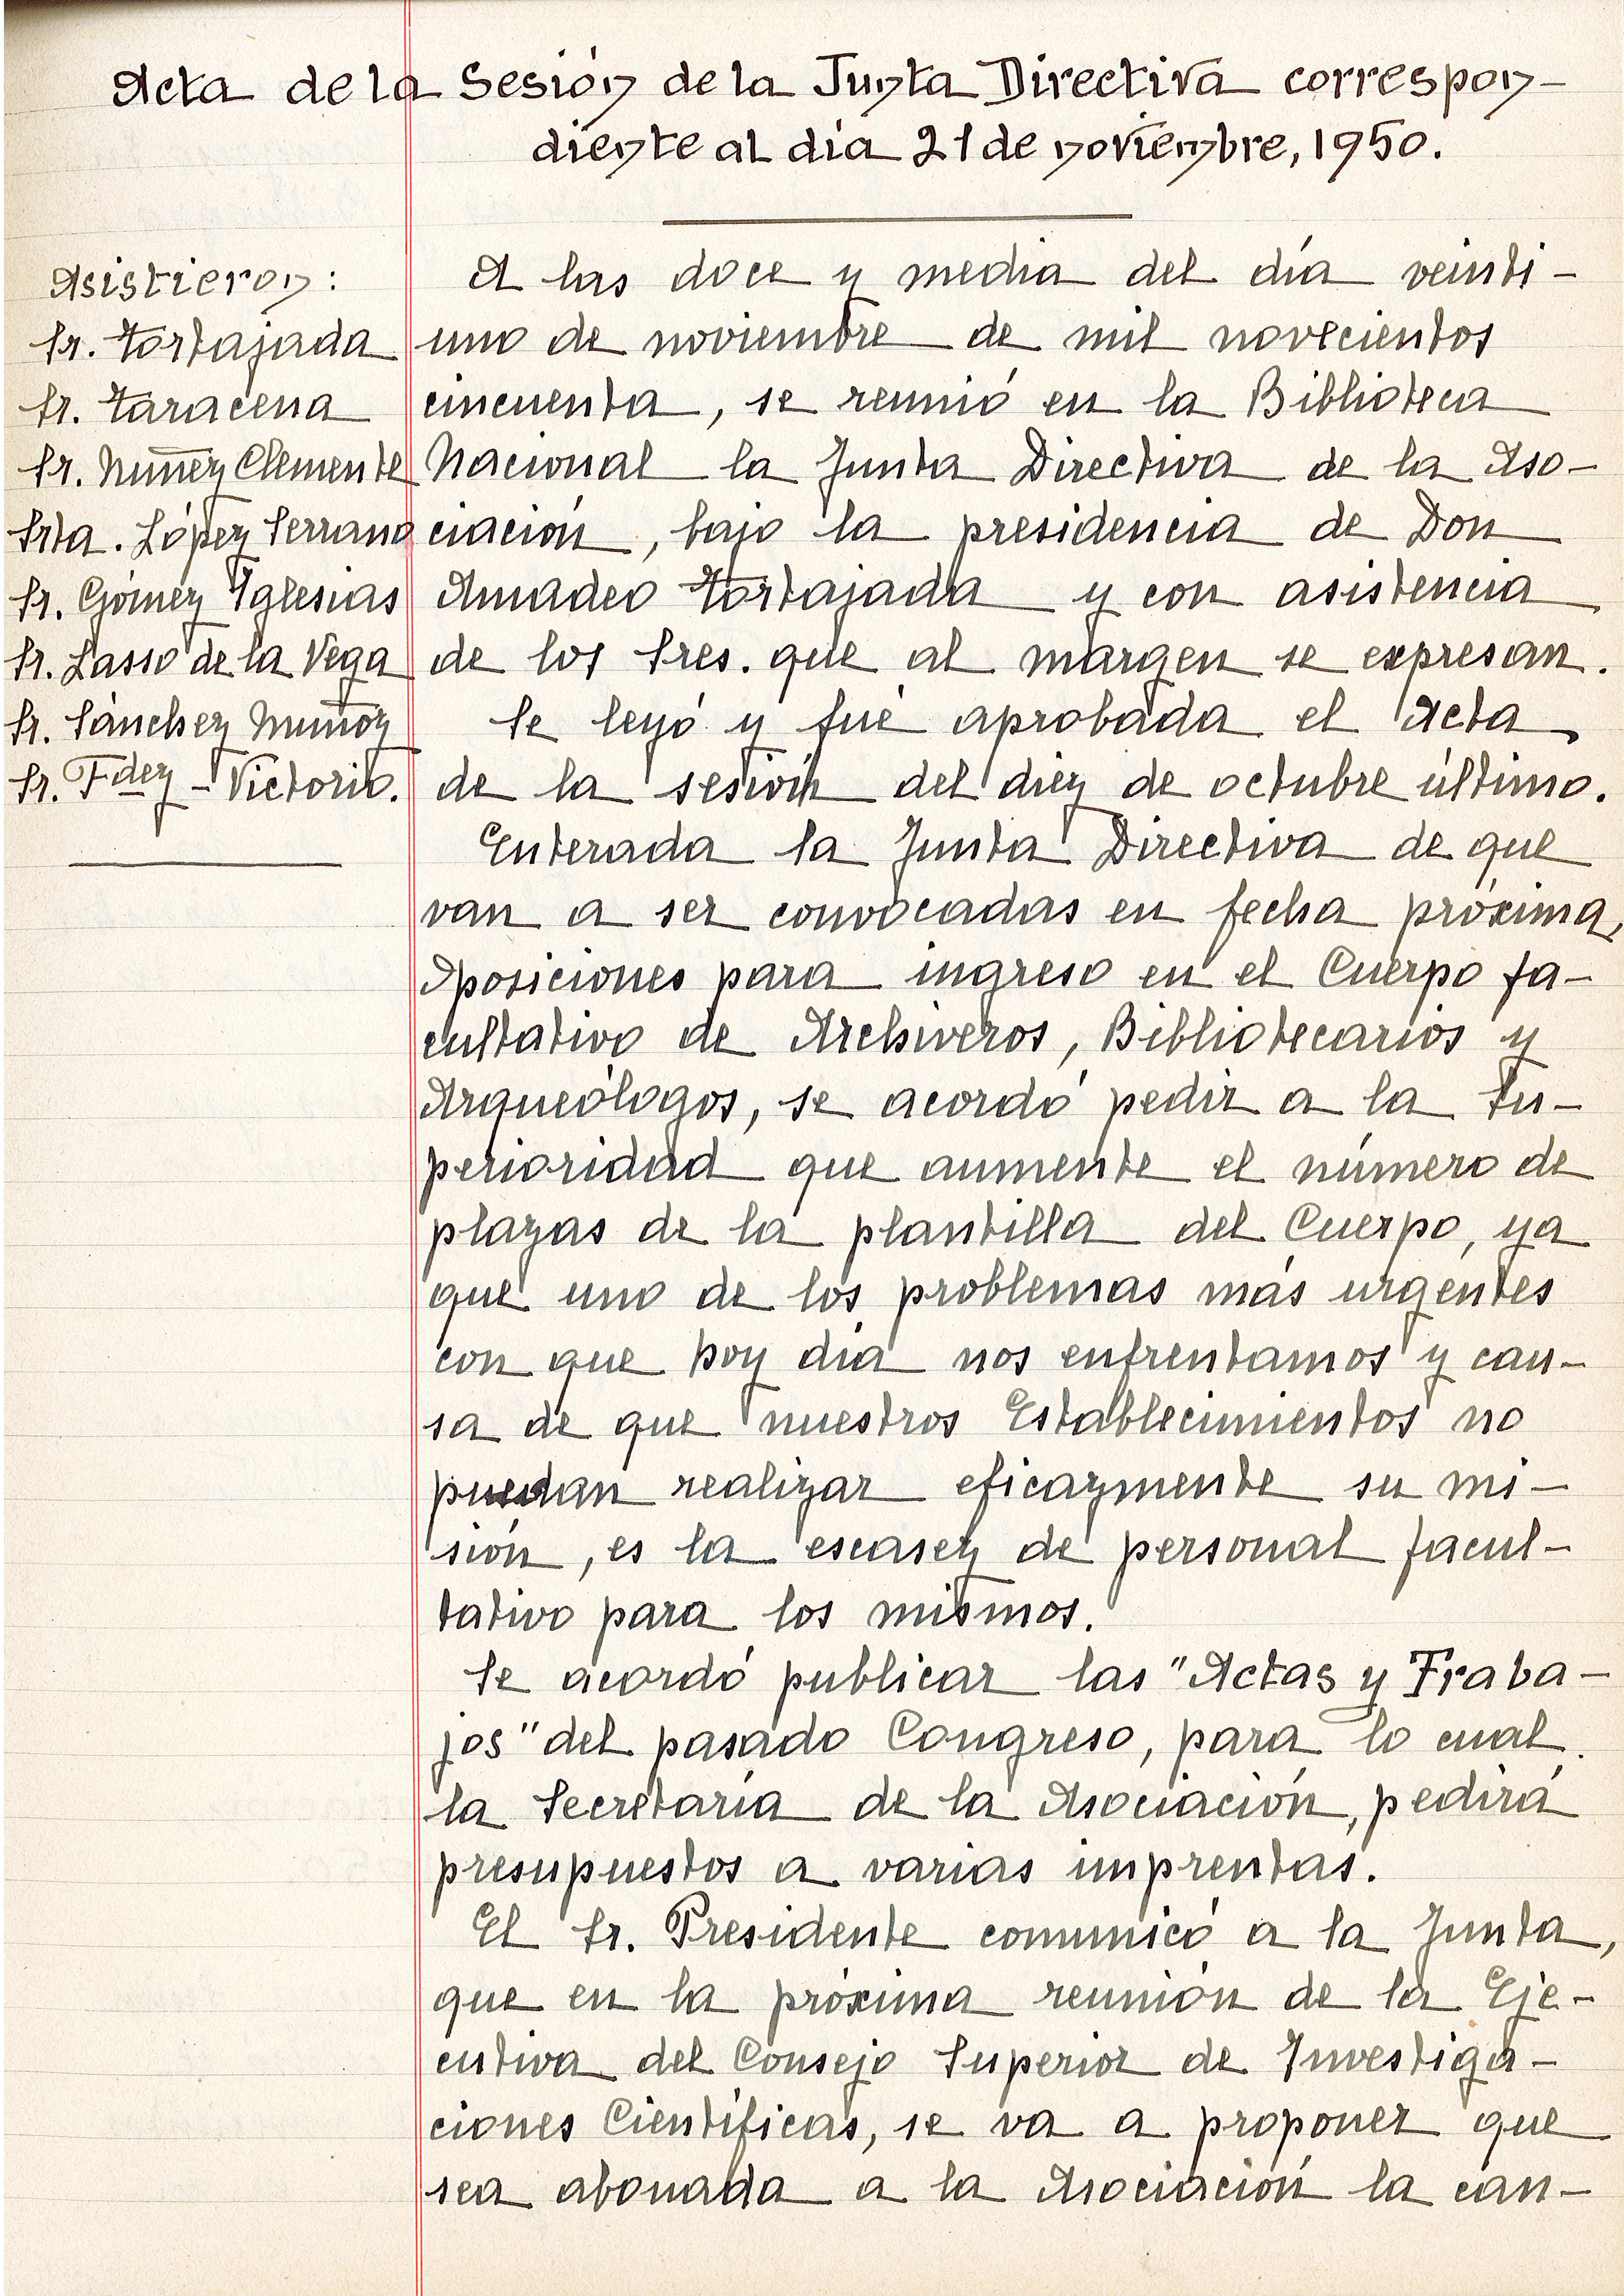 Acta de la Sesión de la Junta Directiva correspon-
diente al día 21 de noviembre, 1950.
Asistieron:
Sr. Tortajada
Sr. Taracena
Sr. Nuñez Clemente
Srta. López Serrano
Sr. Gómez Iglesias
Sr. Lasso de la Vega
Sr. Sánchez Muñoz
Sr. Fdez-Victorio.
A las doce y media del día veinti-
uno de noviembre de mil novecientos
cincuenta, se reunió en la Biblioteca
Nacional la Junta Directiva de la Aso-
ciación, bajo la presidencia de Don
Amadeo Tortajada y con asistencia
de los Sres. que al margen se expresan.
Se leyó y fué aprobada el Acta
de la sesión del diez de octubre último.
Enterada la Junta Directiva de que
van a ser convocadas en fecha próxima,
Oposiciones para ingreso en el Cuerpo fa-
cultativo de Archiveros, Bibliotecarios y
Arqueólogos, se acordó pedir a la Su-
perioridad que aumente el número de
plazas de la plantilla del Cuerpo, ya
que uno de los problemas más urgentes
con que hoy día nos enfrentamos y cau-
sa de que nuestros Establecimientos no
puedan realizar eficazmente su mi-
sión, es la escasez de personal facul-
tativo para los mismos.
Se acordó publicar las "Actas y Traba-
jos" del pasado Congreso, para lo cual
la Secretaría de la Asociación, pedirá
presupuestos a varias imprentas.
El Sr. Presidente comunicó a la Junta,
que en la próxima reunión de la Eje-
cutiva del Consejo Superior de Investiga-
ciones Científicas, se va a proponer que
sea abonada a la Asociación la can-